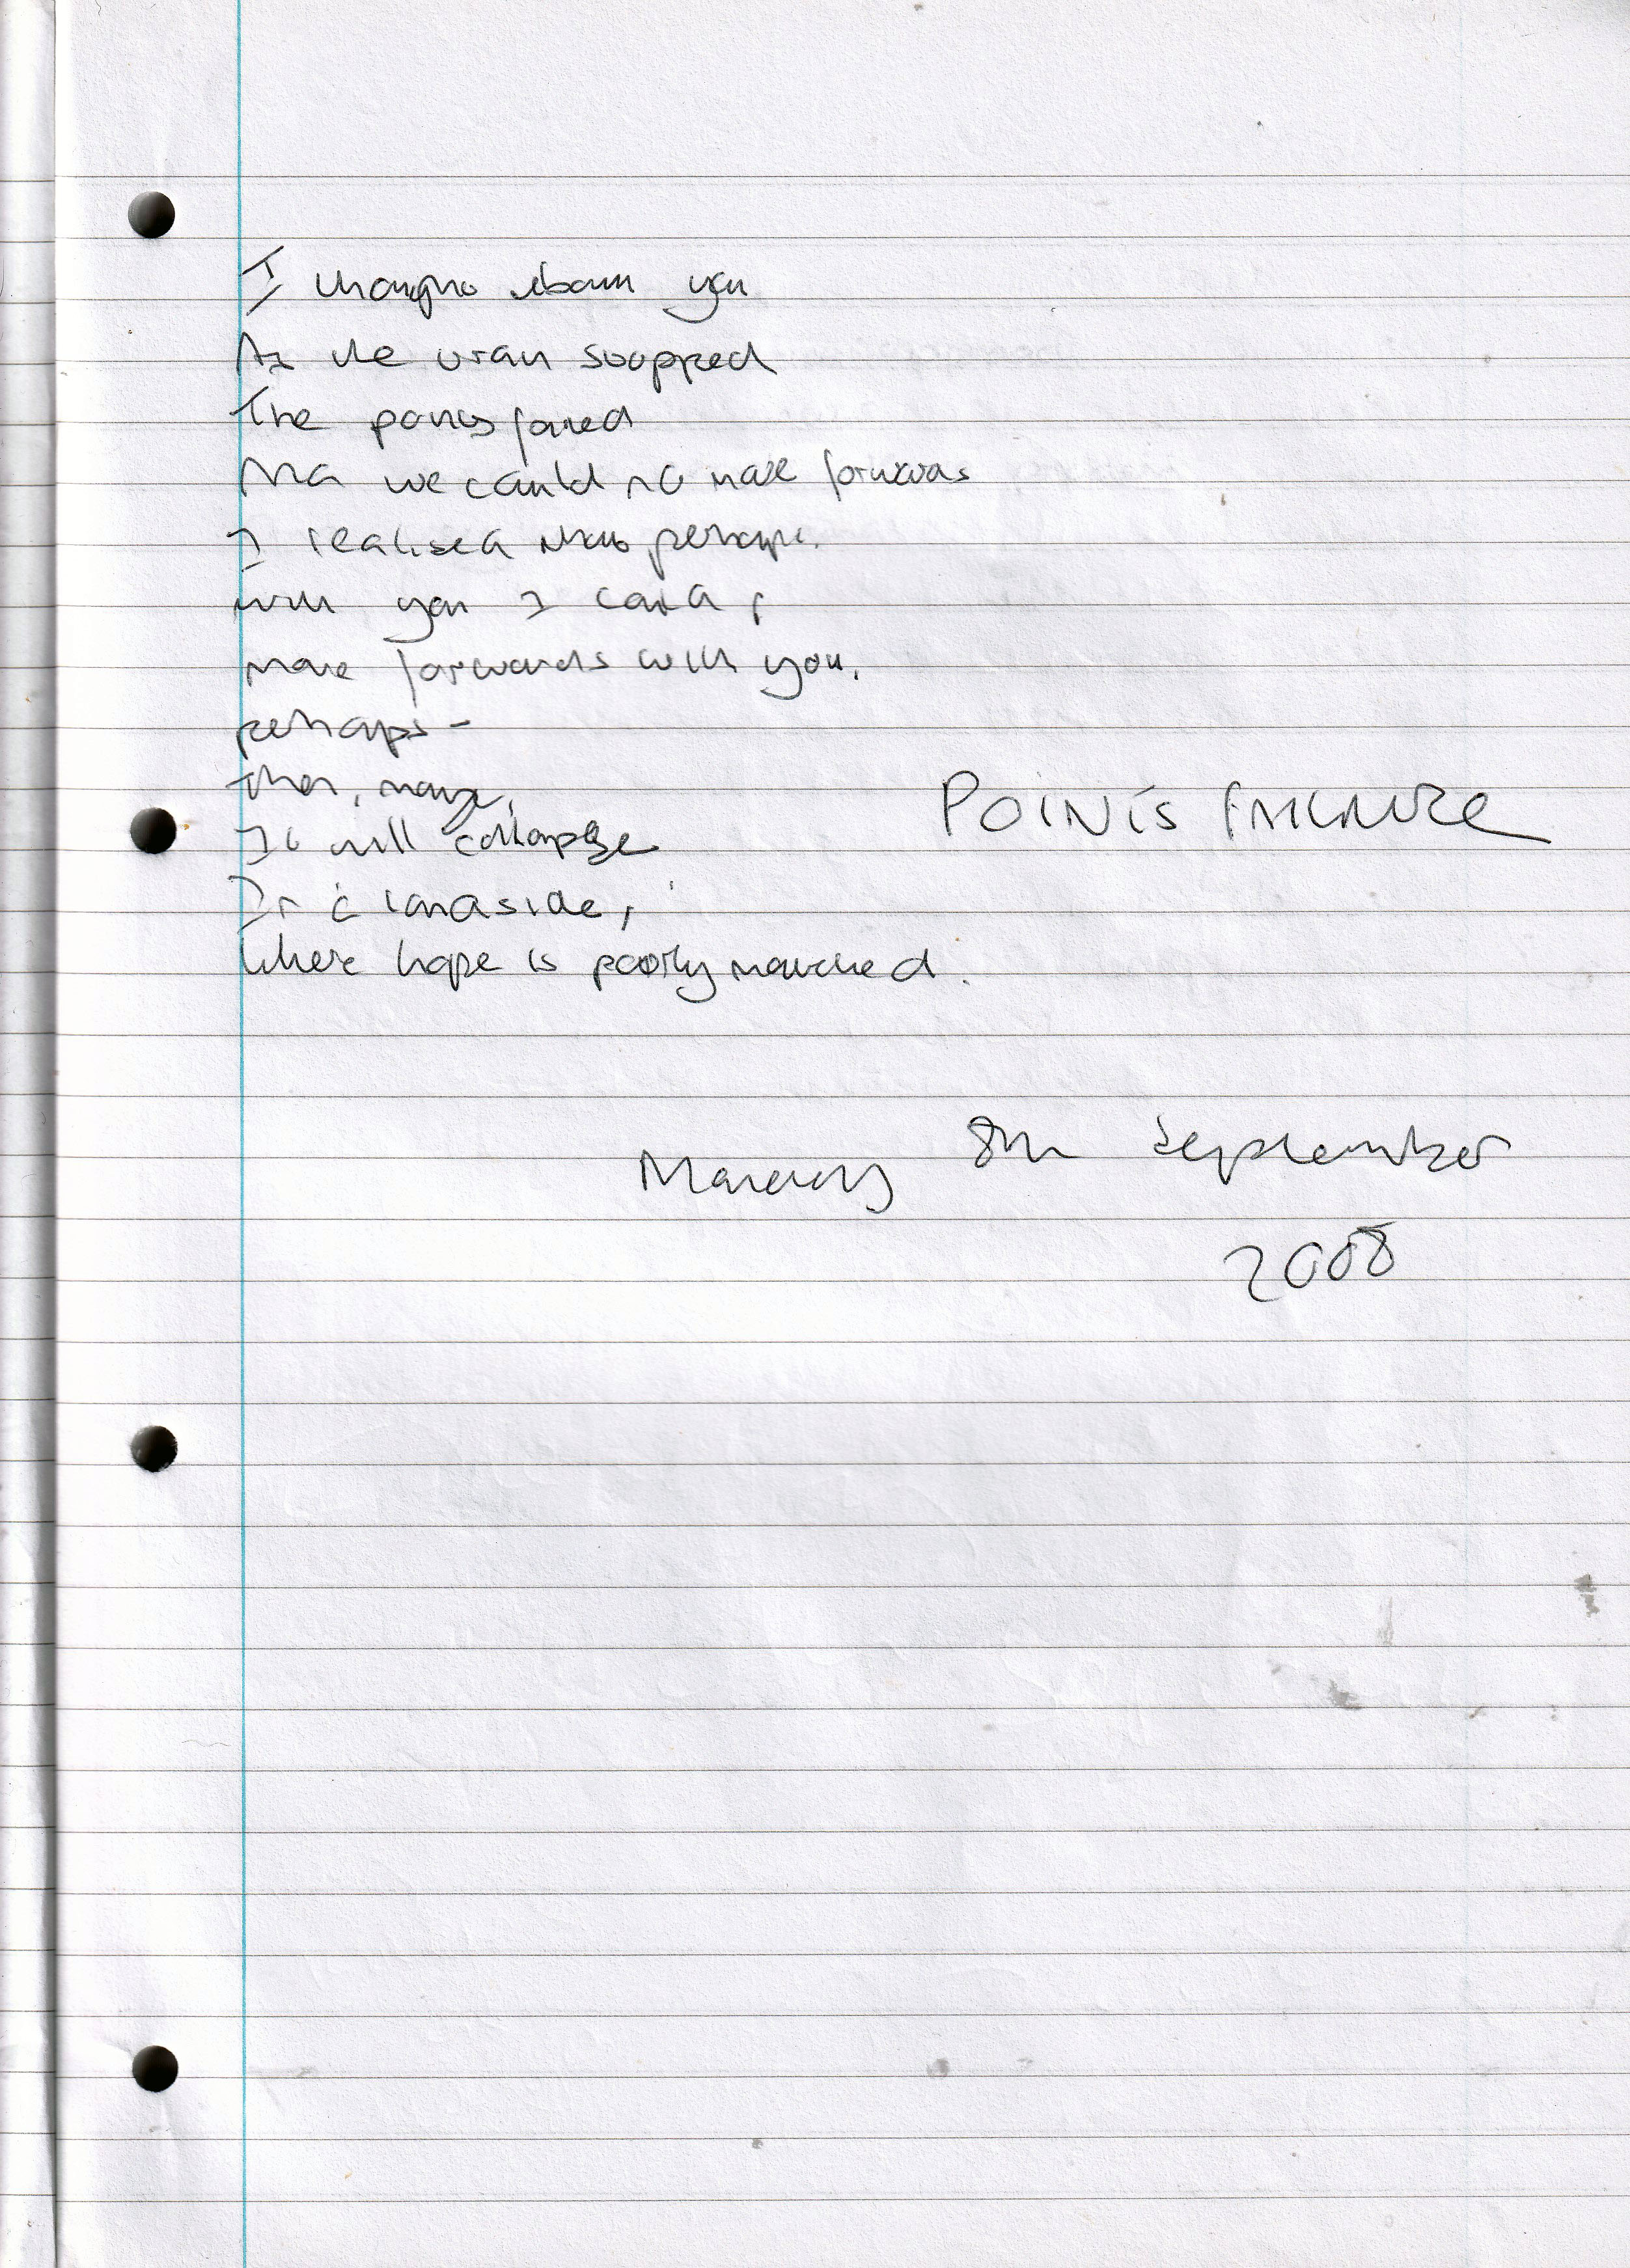 I thought about you
As the train stopped
The points failed
And we could not move forwards
I realised that perhaps.
with you I could,
move forwards with you.
perhaps -
then, maybe,
It will collapse
In a landslide,
Where hope is poorly matched.
POINTS FAILURE
Monday 8th September
2008